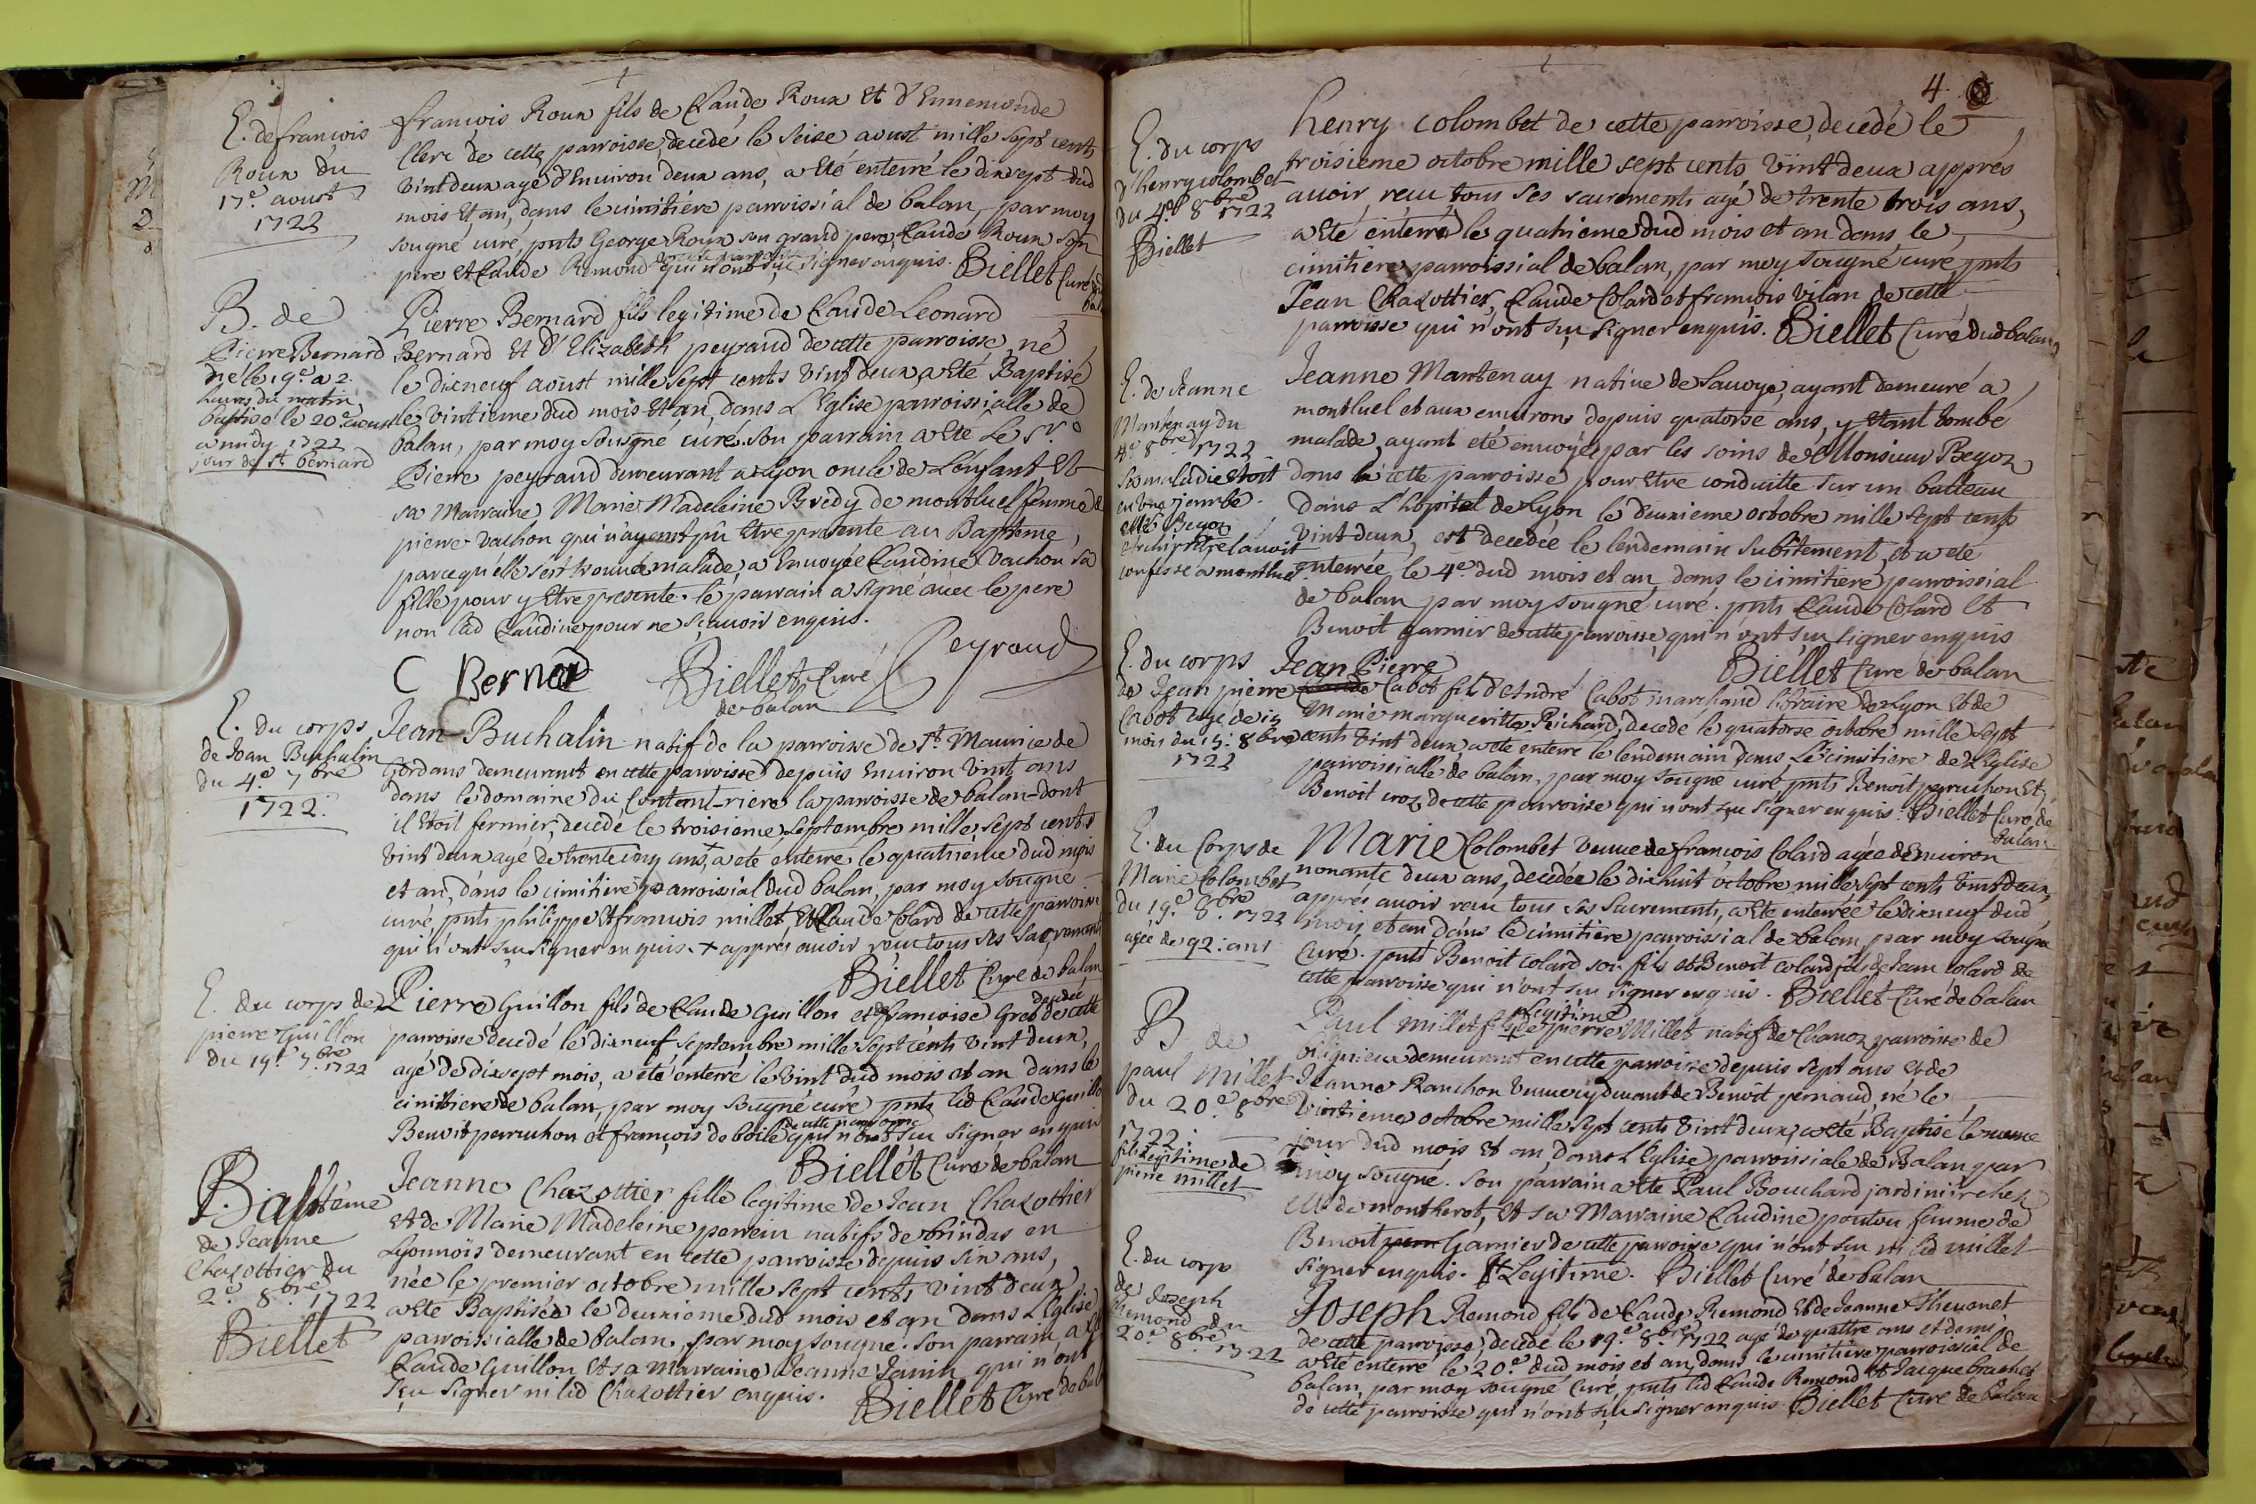 E. de françois
Roux du
17.e aoust
1722
françois Roux fils de Claude Roux et d'Ennemonde
Clerc de cette parroisse, decedé le seise aoust mille sept cents
vint deux agé d'Environ deux ans, a eté enterré le dixsept dud
mois et an, dans le cimitière parroissial de balan, par moy
sougné curé, pnts George Roux son grand pere, Claude Roux son
pere et Claude Remond qui n'ont sçu signer enquis. Biellet Curé
B. de
Pierre Bernard
né le 19.e a 2.
heures du matin
baptisé le 20.e aoust
a midy 1722
jour de st bernard
Pierre Bernard fils legitime de Claude Leonard
Bernard et d'Elizabeth peyraud de cette parroisse, né
le dixneuf aoust mille sept cents vint deux, a eté Baptisé
le vintieme dud mois et an, dans L'Eglise parroissialle de
balan, par moy sousigné curé. son parrain a eté le sr.
Pierre peyraud demeurant a Lyon oncle de L'enfant, et
sa Marraine Marie Madeleine Bredy de montluel femme de
pierre vachon qui n'ayant pû etre presente au Baptême,
parcequ'elle s'est trouvée malade, a envoyée Claudine vachon sa
fille pour y etre presente. le parrain a signé avec le pere
non lad Claudine pour ne sçavoir enquis.
C Bernard Biellet Curé Peyraud
de balan
E. du corps
de Jean Buchalin
du 4.e 7bre
1722.
Jean Buchalin natif de la parroisse de St. Maurice de
Gordans demeurant en cette parroisse depuis environ vint ans
dans le domaine du Content-riere la parroisse de balan-dont
il etoit fermier, decedé le troisieme septembre mille sept cents
vint deux agé de trente cinq ans, + a eté enterré le quatrième dud mois
et an, dans le cimitière parroissial dud balan, par moy sougné
curé, pnts philippe et francois millet, et Claude Colard de cette parroisse
qui n'ont sçu signer enquis. + apprés avoir reçu tous ses sacrements
Biellet Curé de balan
E. du corps de
pierre Guillon
du 19.e 7.bre 1722
Pierre Guillon fils de Claude Guillon et de françoise Gros decedée de cette
parroisse decedé le dixneuf septembre mille sept cents vint deux,
agé de dixsept mois, a eté enterré le vint dud mois et an dans le
cimitiere de balan, par moy sougné curé pnts led Claude Guillon
Benoit perruchon et françois de boile de cette parroisse qui n'ont sçu signer enquis
Biellet Curé de balan
Baptême
de Jeanne
Chazottier du
2.e 8.bre 1722
Biellet
Jeanne Chazottier fille legitime de Jean Chazottier
et de Marie Madeleine perrein natifs de brindas en
Lyonnois demeurant en cette parroisse depuis six ans,
née le premier octobre mille sept cents vint deux,
a eté Baptisée le deuxieme dud mois et an dans L'Eglise
parroissialle de balan, par moy sougné. son parrain a eté
Claude Guillon et sa Marraine Jeanne Janin qui n'ont
sçu signer ni led Chazottier enquis. Biellet Curé de bal
4.
E. du corps
d'henry colombet
du 4.e 8bre 1722
Biellet
henry colombet de cette parroisse, decedé le
troisieme octobre mille sept cents vint deux apprés
avoir reçu tous ses sacrements agé de trente trois ans,
a eté enterré le quatrieme dud mois et an dans le
cimitiere parroissial de balan, par moy sougné curé, pnts
Jean Chazottier, Claude Colard et françois vilan de cette
parroisse qui n'ont sçu signer enquis. Biellet Curé dud balan
E. de Jeanne
Mantenay du
4.e 8bre 1722
sa maladie etoit
en une jambe.
Mr. Begoz
archiprêtre l'avoit
confessé a montluel
Jeanne Mantenay native de Savoye, ayant demeuré a
montluel et aux environs depuis quatorse ans, y etant tombé
malade, ayant eté envoyée par les soins de Monsieur Begoz
dans cette parroisse pour etre conduitte sur un batteau
dans L'hôpital de Lyon le deuxieme octobre mille sept cents
vint deux, est decedée le lendemain subitement, et a eté
enterrée le 4.e dud mois et an, dans le cimitiere parroissial
de balan par moy sougné curé. pnts Claude Colard et
Benoit garnier de cette parroisse, qui n'ont sçu signer enquis
Biellet Curé de balan
E. du corps
de Jean pierre
Cabot agé de
mois du 15. 8bre
1722
Jean Pierre
Cabot fils d'André Cabot marchand libraire de Lyon et de
Marie margueritte Richard, decedé le quatorse octobre mille sept
cents vint deux, a eté enterré le lendemain dans le cimitiere de L'Eglise
parroissialle de balan, par moy sougné curé pnts Benoit perruchon et
Benoit croz de cette parroisse qui n'ont sçu signer enquis. Biellet Curé de
balan
E. du Corps de
Marie Colombet
du 19.e 8.bre 1722
agée de 92. ans
Marie Colombet veuve de françois Colard agée d'Environ
nonante deux ans, decedée le dixhuit octobre mille sept cents vint deux,
apprés avoir reçu tous ses sacrements, a eté enterrée le dixneuf dud
mois et an dans le cimitiere parroissial de balan, par moy sougné
curé. pnts Benoit colard son fils et Benoit colard fils de Jean colard de
cette parroisse qui n'ont sçu signer enquis. Biellet Curé de balan
B de
paul millet
du 20.e 8bre
1722.
fils legitime de
pierre millet
Paul millet fils legitime de pierre Millet natif de Chanoz parroisse de
demeurant en cette parroisse depuis sept ans et de
Jeanne Ranchon veuve cydevant de Benoit pernaud, né le
vintieme octobre mille sept cents vint deux, a eté Baptisé le meme
jour dud mois et an, dans L'Eglise parroissiale de Balan par
moy sougné. son parrain a eté Paul Bouchard jardinier chez
Mr de montherot, et sa Marraine Claudine poulou femme de
Benoit Garnier de cette parroisse qui n'ont sçu ni led millet
signer enquis. + Legitime. Biellet Curé de balan
E. du corps
de Joseph
Remond du
20.e 8bre 1722
Joseph Remond fils de Claude Remond et de Jeanne Thevenet
de cette parroisse, decedé le 19.e 8.bre 1722 agé de quattre ans et demi,
a eté enterré le 20.e dud mois et an, dans le cimitiere parroissial de
balan, par moy sougné curé, pnts led Claude Remond et Jacque brachet
de cette parroisse qui n'ont sçu signer enquis. Biellet Curé de balan